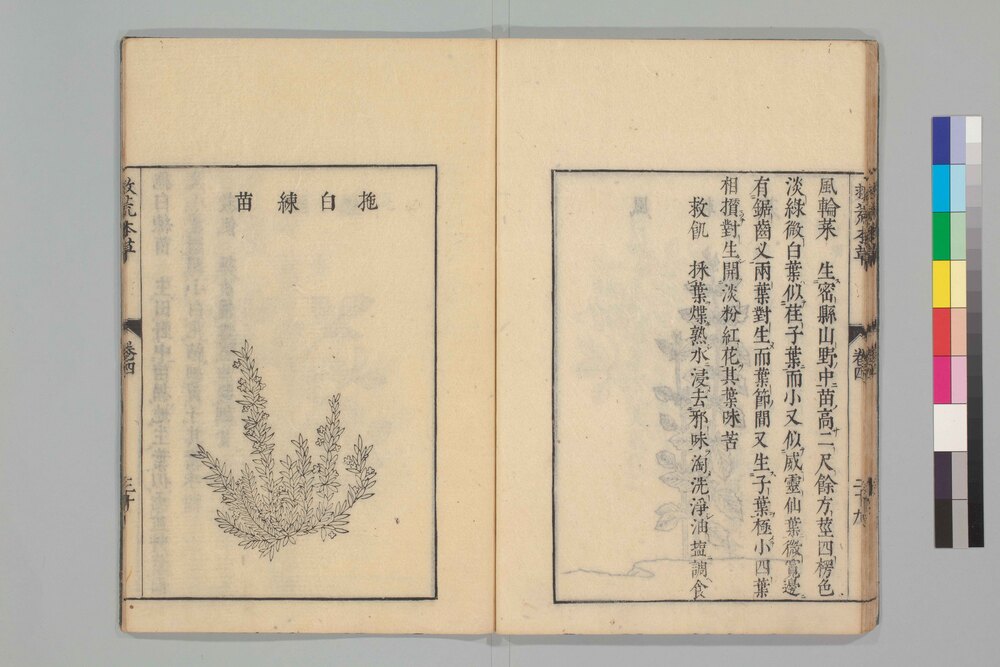 救荒本草
卷四
二十九
風輪菜 生密縣山野中苗高二尺餘方莖四楞色
淡綠微白葉似荏子葉而小又似威靈仙葉微寬邊
有鋸齒又兩葉對生而葉節間又生子葉極小四葉
相攢對生開淡粉紅花其葉味苦
救飢 採葉煠熟水浸去邪味淘洗淨油鹽調食
拖白練苗
救荒本草
卷四
三十